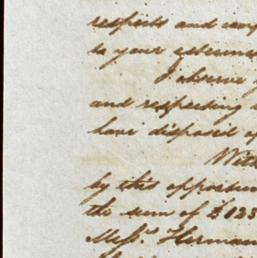 respects and
to your esteemed
I observe
and respecting
have disposed of
With
by this
the sum of £123
Messrs. Herman